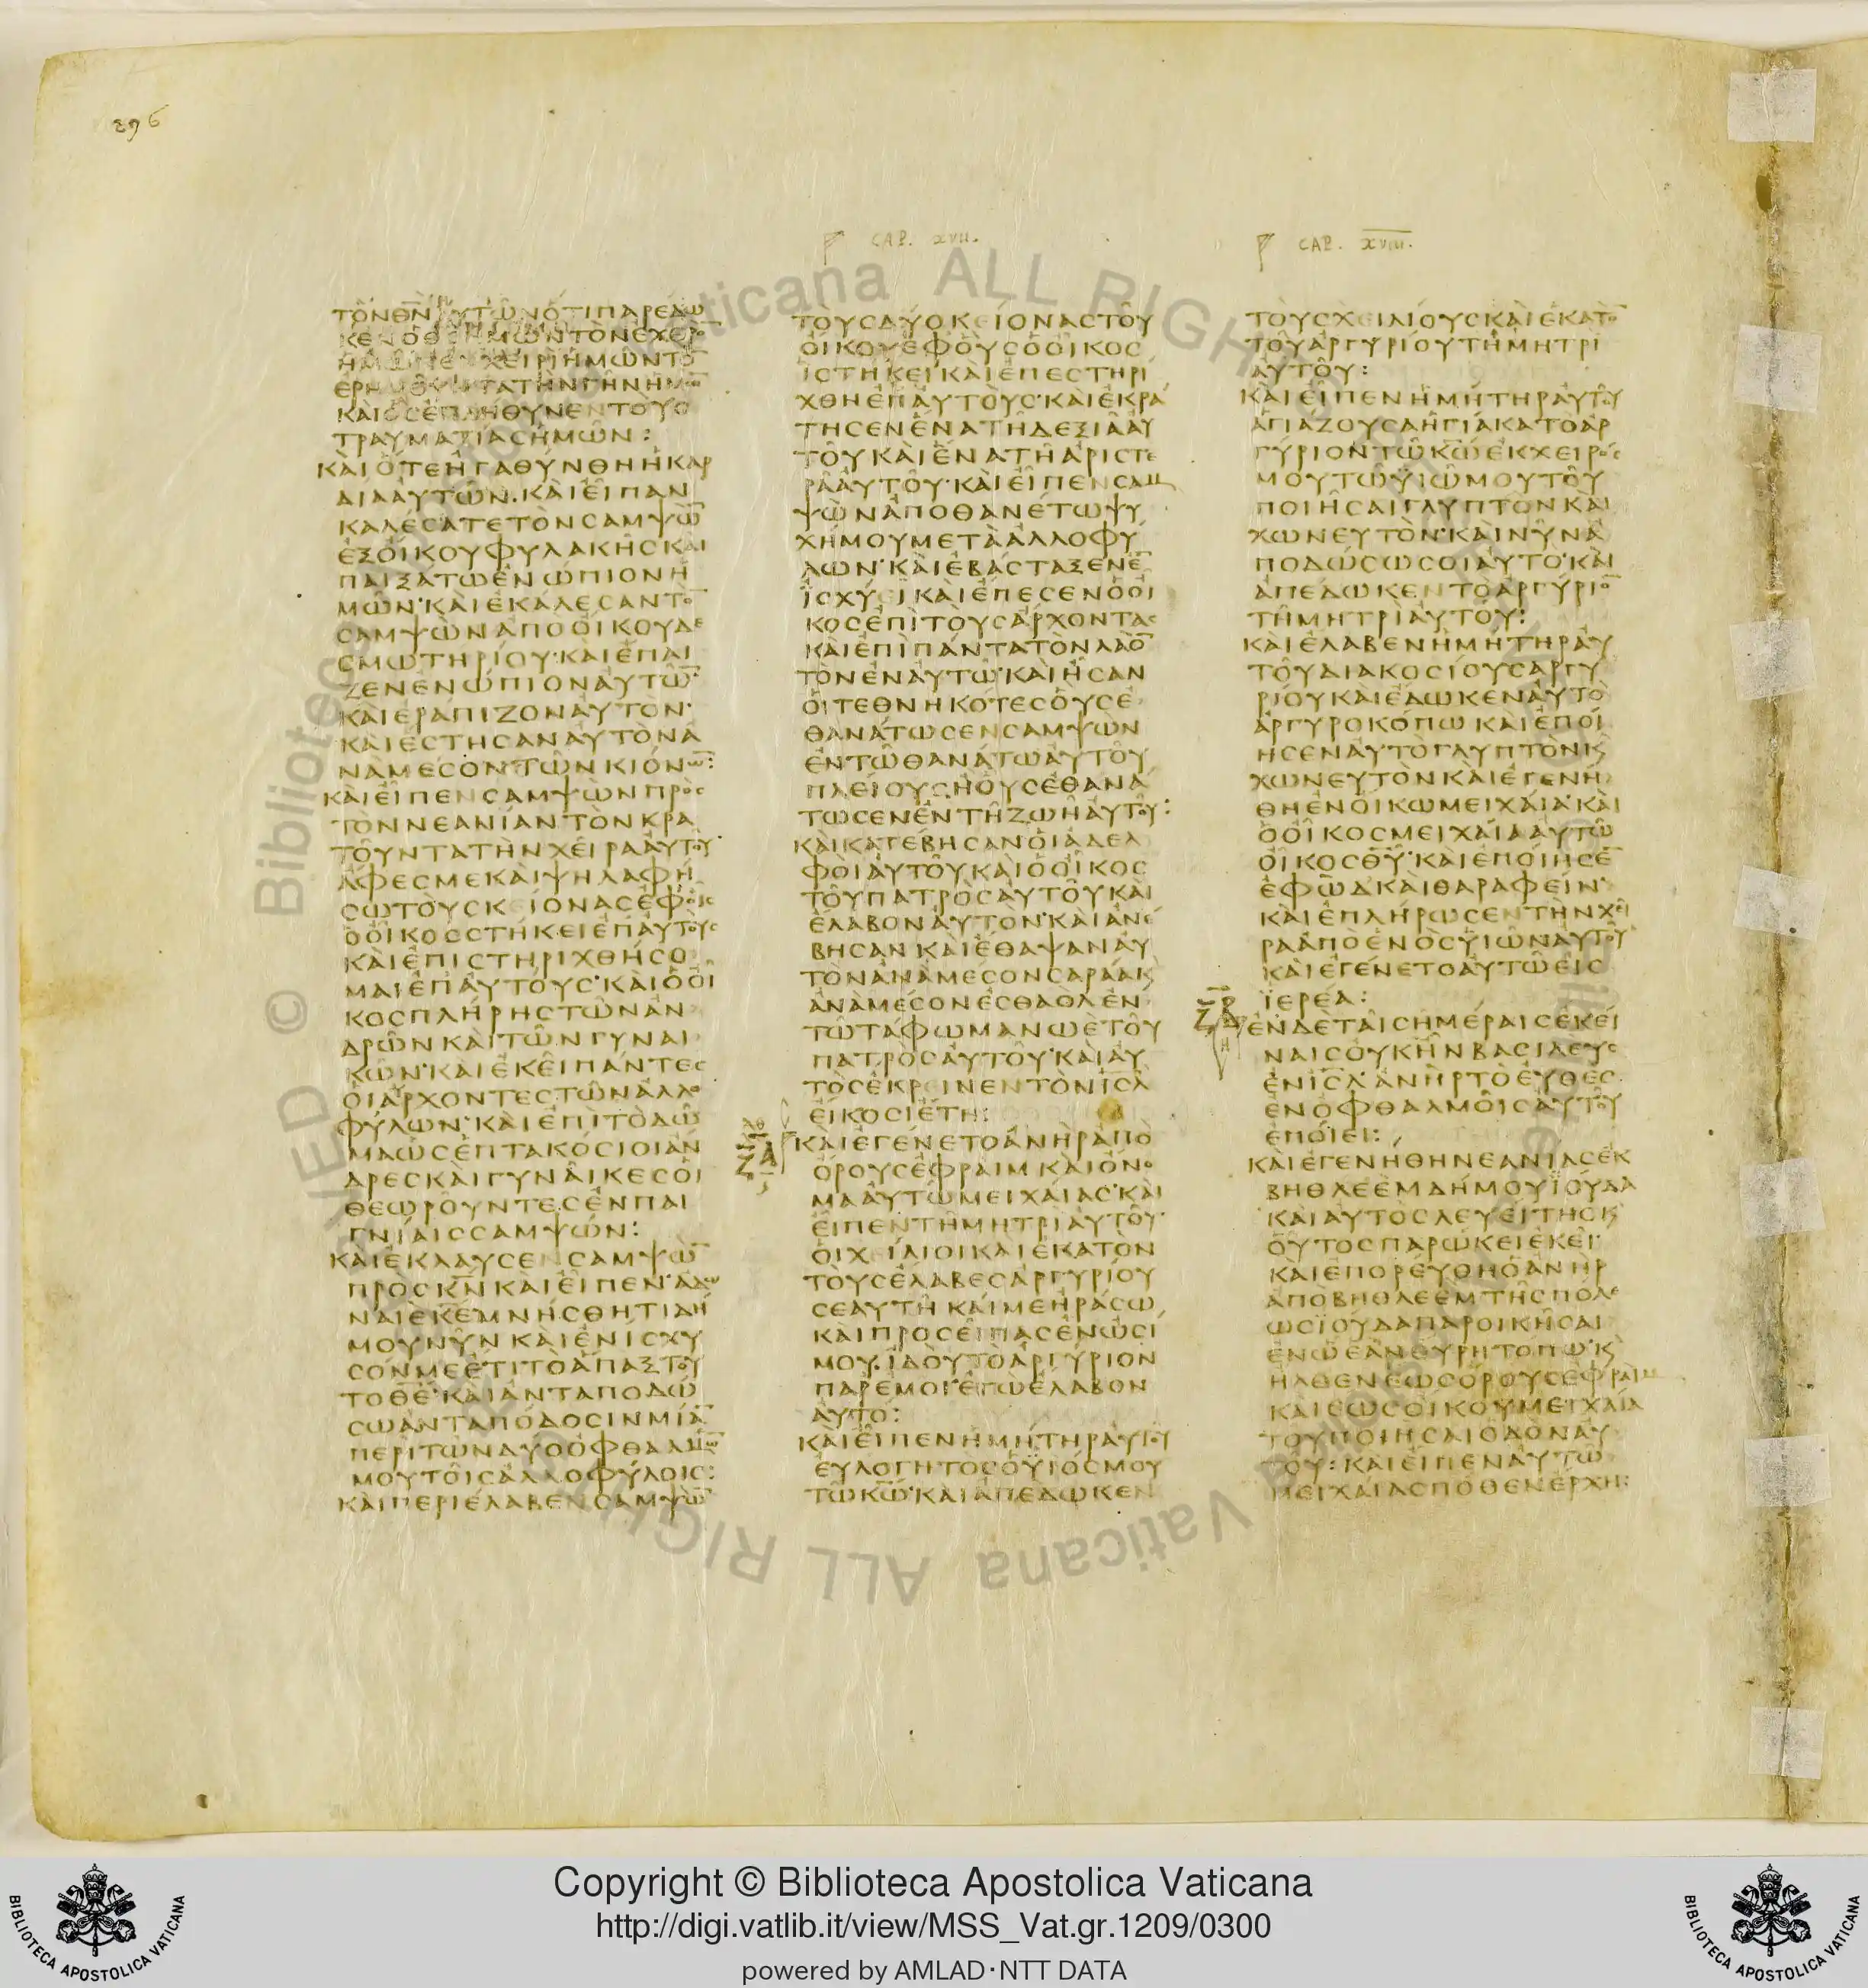 296
CAP. XVII.
ΤΟΝΘΝ ΑΥΤΩΝΟΤΙΠΑΡΕΔΩ
ΚΕΝΟΘΣΗΜΩΝΤΟΝΕΧΘΡΟ
ΗΜΩΝΕΝΧΕΙΡΙΗΜΩΝΤΟ
ΕΡΗΜΟΥΝΤΑΤΗΝΓΗΝΗΜΩ
ΚΑΙΟΣΕΠΛΗΘΥΝΕΝΤΟΥΣ
ΤΡΑΥΜΑΤΙΑΣΗΜΩΝ:
ΚΑΙΟΤΕΗΓΑΘΥΝΘΗΗΚΑΡ
ΔΙΑΑΥΤΩΝ·ΚΑΙΕΙΠΑΝ
ΚΑΛΕΣΑΤΕΤΟΝΣΑΜΨΩ
ΕΞΟΙΚΟΥΦΥΛΑΚΗΣΚΑΙ
ΠΑΙΞΑΤΩΕΝΩΠΙΟΝΗ
ΜΩΝ·ΚΑΙΕΚΑΛΕΣΑΝΤΟ
ΣΑΜΨΩΝΑΠΟΟΙΚΟΥΔΕ
ΣΜΩΤΗΡΙΟΥ·ΚΑΙΕΠΑΙ
ΖΕΝΕΝΩΠΙΟΝΑΥΤΩ
ΚΑΙΕΡΑΠΙΖΟΝΑΥΤΟΝ·
ΚΑΙΕΣΤΗΣΑΝΑΥΤΟΝΑ
ΝΑΜΕΣΟΝΤΩΝΚΙΟΝΩ:
ΚΑΙΕΙΠΕΝΣΑΜΨΩΝΠΡΟΣ
ΤΟΝΝΕΑΝΙΑΝΤΟΝΚΡΑ
ΤΟΥΝΤΑΤΗΝΧΕΙΡΑΑΥΤΟΥ
ΑΦΕΣΜΕΚΑΙΨΗΛΑΦΗ
ΣΩΤΟΥΣΚΕΙΟΝΑΣΕΦΟΙΣ
ΟΟΙΚΟΣΣΤΗΚΕΙΕΠΑΥΤΟΥΣ
ΚΑΙΕΠΙΣΤΗΡΙΧΘΗΣΟ
ΜΑΙΕΠΑΥΤΟΥΣ·ΚΑΙΟΟΙ
ΚΟΣΠΛΗΡΗΣΤΩΝΑΝ
ΔΡΩΝΚΑΙΤΩΝΓΥΝΑΙ
ΚΩΝ·ΚΑΙΕΚΕΙΠΑΝΤΕΣ
ΟΙΑΡΧΟΝΤΕΣΤΩΝΑΛΛΟ
ΦΥΛΩΝ·ΚΑΙΕΠΙΤΟΔΩ
ΜΑΩΣΕΠΤΑΚΟΣΙΟΙΑΝ
ΔΡΕΣΚΑΙΓΥΝΑΙΚΕΣΟΙ
ΘΕΩΡΟΥΝΤΕΣΕΝΠΑΙ
ΓΝΙΑΙΣΣΑΜΨΩΝ:
ΚΑΙΕΚΛΑΥΣΕΝΣΑΜΨΩ
ΠΡΟΣΚΝΚΑΙΕΙΠΕΝ·ΑΔΩ
ΝΑΙΕΚΕΜΝΗΣΘΗΤΙΔΗ
ΜΟΥΝΥΝΚΑΙΕΝΙΣΧΥ
ΣΟΝΜΕΕΤΙΤΟΑΠΑΞΤΟΥ
ΤΟΘΕ·ΚΑΙΑΝΤΑΠΟΔΩ
ΣΩΑΝΤΑΠΟΔΟΣΙΝΜΙΑ
ΠΕΡΙΤΩΝΔΥΟΟΦΘΑΛΜΩ
ΜΟΥΤΟΙΣΑΛΛΟΦΥΛΟΙΣ:
ΚΑΙΠΕΡΙΕΛΑΒΕΝΣΑΜΨΩ
ΤΟΥΣΔΥΟΚΕΙΟΝΑΣΤΟΥ
ΟΙΚΟΥΕΦΟΥΣΟΟΙΚΟΣ
ΙΣΤΗΚΕΙΚΑΙΕΠΕΣΤΗΡΙ
ΧΘΗΕΠΑΥΤΟΥΣ·ΚΑΙΕΚΡΑ
ΤΗΣΕΝΕΝΑΤΗΔΕΞΙΑΑΥ
ΤΟΥΚΑΙΕΝΑΤΗΑΡΙΣΤΕ
ΡΑΑΥΤΟΥ·ΚΑΙΕΙΠΕΝΣΑΜ
ΨΩΝΑΠΟΘΑΝΕΤΩΨΥ
ΧΗΜΟΥΜΕΤΑΑΛΛΟΦΥ
ΛΩΝ·ΚΑΙΕΒΑΣΤΑΞΕΝΕ
ΙΣΧΥΕΙΚΑΙΕΠΕΣΕΝΟΟΙ
ΚΟΣΕΠΙΤΟΥΣΑΡΧΟΝΤΑΣ
ΚΑΙΕΠΙΠΑΝΤΑΤΟΝΛΑΟ
ΤΟΝΕΝΑΥΤΩ·ΚΑΙΗΣΑΝ
ΟΙΤΕΘΝΗΚΟΤΕΣΟΥΣΕ
ΘΑΝΑΤΩΣΕΝΣΑΜΨΩΝ
ΕΝΤΩΘΑΝΑΤΩΑΥΤΟΥ
ΠΛΕΙΟΥΣΗΟΥΣΕΘΑΝΑ
ΤΩΣΕΝΕΝΤΗΖΩΗΑΥΤΟΥ:
ΚΑΙΚΑΤΕΒΗΣΑΝΟΙΑΔΕΛ
ΦΟΙΑΥΤΟΥΚΑΙΟΟΙΚΟΣ
ΤΟΥΠΑΤΡΟΣΑΥΤΟΥΚΑΙ
ΕΛΑΒΟΝΑΥΤΟΝ·ΚΑΙΑΝΕ
ΒΗΣΑΝΚΑΙΕΘΑΨΑΝΑΥ
ΤΟΝΑΝΑΜΕΣΟΝΣΑΡΑΑΚ
ΑΝΑΜΕΣΟΝΕΣΘΑΟΛΕΝ
ΤΩΤΑΦΩΜΑΝΩΕΤΟΥ
ΠΑΤΡΟΣΑΥΤΟΥ·ΚΑΙΑΥ
ΤΟΣΕΚΡΕΙΝΕΝΤΟΝΙΣΛ
ΕΙΚΟΣΙΕΤΗ:
ΚΑΙΕΓΕΝΕΤΟΑΝΗΡΑΠΟ
ΟΡΟΥΣΕΦΡΑΙΜΚΑΙΟΝΟ
ΜΑΑΥΤΩΜΕΙΧΑΙΑΣ·ΚΑΙ
ΕΙΠΕΝΤΗΜΗΤΡΙΑΥΤΟΥ·
ΟΙΧΕΙΛΙΟΙΚΑΙΕΚΑΤΟΝ
ΤΟΥΣΕΛΑΒΕΣΑΡΓΥΡΙΟΥ
ΣΕΑΥΤΗΚΑΙΜΕΗΡΑΣΩ
ΚΑΙΠΡΟΣΕΙΠΑΣΕΝΩΣΙ
ΜΟΥ·ΙΔΟΥΤΟΑΡΓΥΡΙΟΝ
ΠΑΡΕΜΟΙ·ΕΓΩΕΛΑΒΟΝ
ΑΥΤΟ:
ΚΑΙΕΙΠΕΝΗΜΗΤΗΡΑΥΤΟΥ
ΕΥΛΟΓΗΤΟΣΟΥΙΟΣΜΟΥ
ΤΩΚΩ·ΚΑΙΑΠΕΔΩΚΕΝ
CAP. XVIII.
ΤΟΥΣΧΕΙΛΙΟΥΣΚΑΙΕΚΑΤΟ
ΤΟΥΑΡΓΥΡΙΟΥΤΗΜΗΤΡΙ
ΑΥΤΟΥ:
ΚΑΙΕΙΠΕΝΗΜΗΤΗΡΑΥΤΟΥ
ΑΓΙΑΖΟΥΣΑΗΓΙΑΚΑΤΟΑΡ
ΓΥΡΙΟΝΤΩΚΩΕΚΧΕΙΡΟΣ
ΜΟΥΤΩΥΙΩΜΟΥΤΟΥ
ΠΟΙΗΣΑΙΓΛΥΠΤΟΝΚΑΙ
ΧΩΝΕΥΤΟΝ·ΚΑΙΝΥΝΑ
ΠΟΔΩΣΩΣΟΙΑΥΤΟ·ΚΑΙ
ΑΠΕΔΩΚΕΝΤΟΑΡΓΥΡΙΟ
ΤΗΜΗΤΡΙΑΥΤΟΥ:
ΚΑΙΕΛΑΒΕΝΗΜΗΤΗΡΑΥ
ΤΟΥΔΙΑΚΟΣΙΟΥΣΑΡΓΥ
ΡΙΟΥΚΑΙΕΔΩΚΕΝΑΥΤΟ
ΑΡΓΥΡΟΚΟΠΩΚΑΙΕΠΟΙ
ΗΣΕΝΑΥΤΟΓΛΥΠΤΟΝΚ
ΧΩΝΕΥΤΟΝΚΑΙΕΓΕΝΗ
ΘΗΕΝΟΙΚΩΜΕΙΧΑΙΑ·ΚΑΙ
ΟΟΙΚΟΣΜΕΙΧΑΙΑΑΥΤΩ
ΟΙΚΟΣΘΥ·ΚΑΙΕΠΟΙΗΣΕ
ΕΦΩΔ·ΚΑΙΘΑΡΑΦΕΙΝ·
ΚΑΙΕΠΛΗΡΩΣΕΝΤΗΝΧΕΙ
ΡΑΑΠΟΕΝΟΣΥΙΩΝΑΥΤΟΥ
ΚΑΙΕΓΕΝΕΤΟΑΥΤΩΕΙΣ
ΪΕΡΕΑ:
ΕΝΔΕΤΑΙΣΗΜΕΡΑΙΣΕΚΕΙ
ΝΑΙΣΟΥΚΗΝΒΑΣΙΛΕΥΣ
ΕΝΙΣΛ·ΑΝΗΡΤΟΕΥΘΕΣ
ΕΝΟΦΘΑΛΜΟΙΣΑΥΤΟΥ
ΕΠΟΙΕΙ:
ΚΑΙΕΓΕΝΗΘΗΝΕΑΝΙΑΣΕΚ
ΒΗΘΛΕΕΜΔΗΜΟΥΪΟΥΔΑ
ΚΑΙΑΥΤΟΣΛΕΥΕΙΤΗΣΚ
ΟΥΤΟΣΠΑΡΩΚΕΙΕΚΕΙ·
ΚΑΙΕΠΟΡΕΥΘΗΟΑΝΗΡ
ΑΠΟΒΗΘΛΕΕΜΤΗΣΠΟΛΕ
ΩΣΪΟΥΔΑΠΑΡΟΙΚΗΣΑΙ
ΕΝΩΕΑΝΕΥΡΗΤΟΠΩ·Κ
ΗΛΘΕΝΕΩΣΟΡΟΥΣΕΦΡΑΙΜ
ΚΑΙΕΩΣΟΙΚΟΥΜΕΙΧΑΙΑ
ΤΟΥΠΟΙΗΣΑΙΟΔΟΝΑΥ
ΤΟΥ:ΚΑΙΕΙΠΕΝΑΥΤΩ
ΜΕΙΧΑΙΑΣΠΟΘΕΝΕΡΧΗ:
Copyright © Biblioteca Apostolica Vaticana
http://digi.vatlib.it/view/MSS_Vat.gr.1209/0300
powered by AMLAD·NTT DATA
BIBLIOTECA APOSTOLICA VATICANA
BIBLIOTECA APOSTOLICA VATICANA